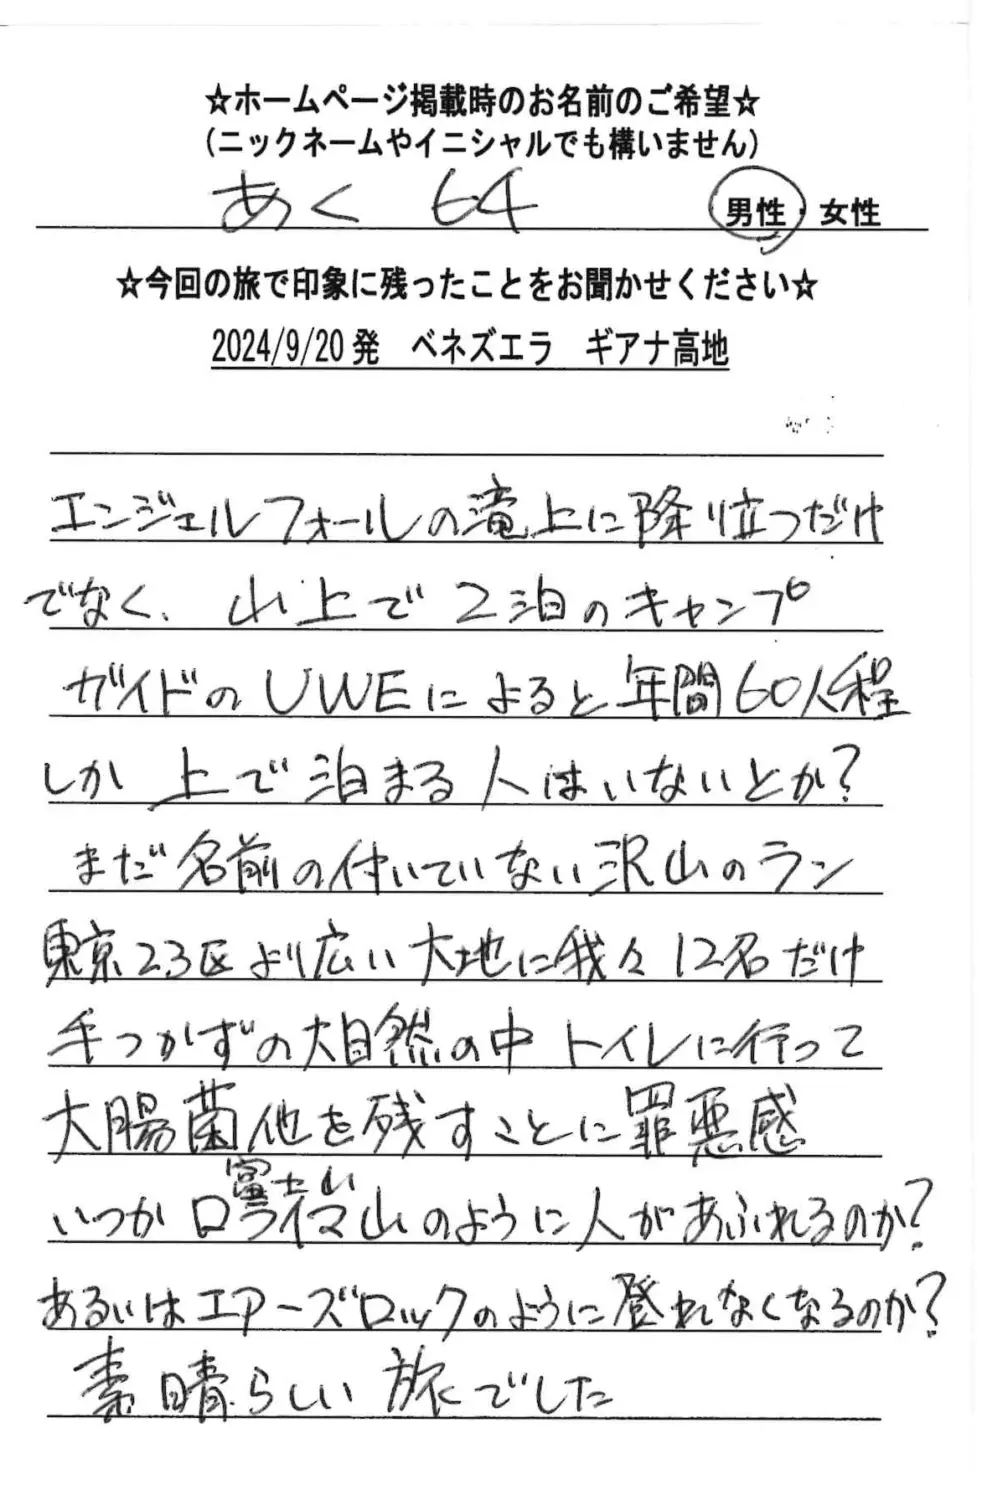 ☆ホームページ掲載時のお名前のご希望☆
(ニックネームやイニシャルでも構いません)
あく 64 男性・女性
☆今回の旅で印象に残ったことをお聞かせください☆
2024/9/20発 ベネズエラ ギアナ高地
エンジェルフォールの滝上に降り立つだけ
でなく、山上で2泊のキャンプ
ガイドのUWEによると年間60人程
しか上で泊まる人はいないとか?
まだ名前の付いていない沢山のラン
東京23区より広い大地に我々12名だけ
手つかずの大自然の中 トイレに行って
大腸菌他を残すことに罪悪感
富士山
いつか 山のように人があふれるのか?
あるいはエアーズロックのように登れなくなるのか?
素晴らしい旅でした